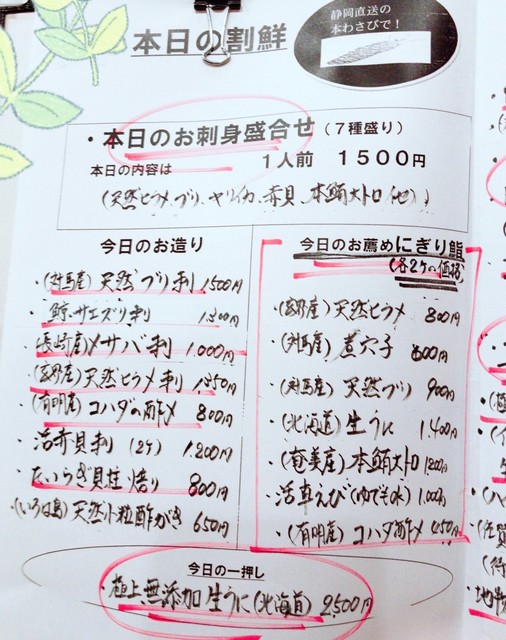 本日の割鮮
静岡直送の
本わさびで!
・本日のお刺身盛合せ(7種盛り)
本日の内容は 1人前 1500円
(天然ヒラメ、ブリ、ヤリイカ、赤貝、本鮪大トロ(他))
今日のお造り
・(対馬産)天然ブリ刺 1500円
・鯨サエズリ刺 1,300円
・長崎産〆サバ刺 1.000円
・(玄界産)天然ヒラメ刺 1,350円
・(有明産)コハダの酢〆 800円
・活赤貝刺(2ケ) 1.200円
・たいらぎ貝柱焙り 800円
・(いろは島)天然小粒酢がき 650円
今日のお薦めにぎり鮨
(各2ケの価格)
・(玄界産)天然ヒラメ 800円
・(対馬産)煮穴子 600円
・(対馬産)天然ブリ 900円
・(北海道)生うに 1,400円
・(奄美産)本鮪大トロ 1200円
・活車えび(ゆでも可) 1.000円
・(有明産)コハダ酢〆 450円
今日の一押し
・極上無添加生うに(北海道) 2,500円